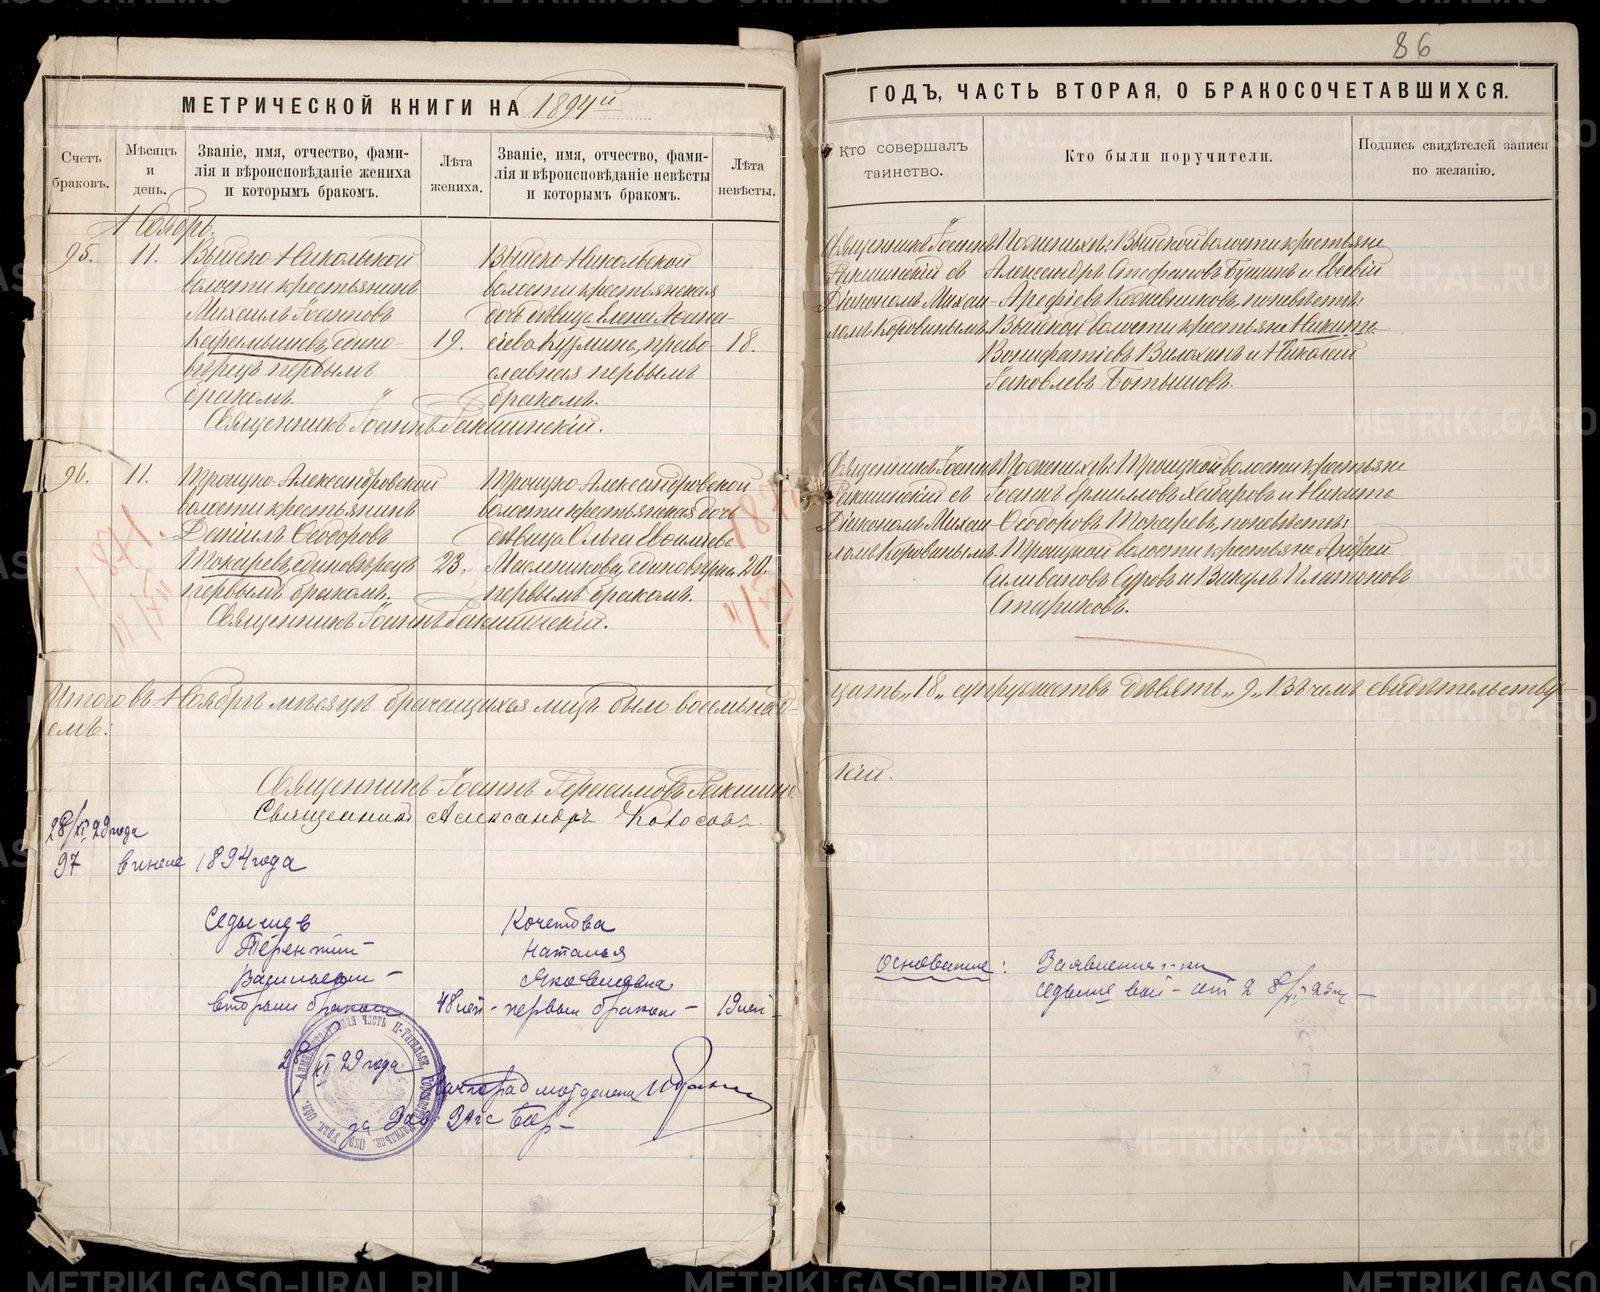 86
МЕТРИЧЕСКОЙ КНИГИ НА 1894й
ГОДЪ, ЧАСТЬ ВТОРАЯ, О БРАКОСОЧЕТАВШИХСЯ.
Счетъ
браковъ.
Мѣсяцъ
и
день.
Званіе, имя, отчество, фами-
лія и вѣроисповѣданіе жениха
и которымъ бракомъ.
Лѣта
жениха.
Званіе, имя, отчество, фами-
лія и вѣроисповѣданіе невѣсты
и которымъ бракомъ.
Лѣта
невѣсты.
Кто совершалъ
таинство.
Кто были поручители.
Подпись свидѣтелей записи
по желанію.
Ноябрь.
95.
11.
Выйско Никольской
волости крестьянинъ
Михаилъ Іоанновъ
Карамышевъ, едино-
вѣрецъ первымъ
бракомъ.
19.
Выйско-Никольской
волости крестьянская
дочь дѣвица Елена Афана-
сіева Кузмина, право-
славная первымъ
бракомъ.
18.
Священникъ Іоаннъ
съ
Діакономъ Михаи-
ломъ Коровинымъ
По женихѣ: Выйской волости крестьяне
Александръ Стефановъ Бушинъ и Евсевій
Арефіевъ Кожевниковъ, по невѣстѣ:
Выйской волости крестьяне Никита
Вонифатіевъ Вилохинъ и Николай
Іаковлевъ
Священникъ Іоаннъ
96.
11.
Троицко-Александровской
волости крестьянинъ
Даніилъ Ѳеодоровъ
Токаревъ, единовѣрецъ
первымъ бракомъ.
23.
Троицко-Александровской
волости крестьянская дочь
дѣвица Ольга Евоміева
Масленникова, единовѣрка
первымъ бракомъ.
20.
Священникъ Іоаннъ
съ
Діакономъ Михаи-
ломъ Коровинымъ.
По женихѣ: Троицкой волости крестьяне
Іоаннъ Ермиловъ Хабаровъ и Никита
Ѳеодоровъ Токаревъ, по невѣстѣ:
Троицкой волости крестьяне Андрей
Силивановъ Суровъ и Викулъ Платоновъ
Стариковъ.
Священникъ Іоаннъ
1871.
Итого въ Ноябрѣ мѣсяцѣ брачащихся лицъ было восемнад-
цать „18„ супружествъ девять „9„ Въ чемъ свидѣтельству-
емъ:
Священникъ Іоаннъ Герасимовъ
кій.
Священникъ Александръ Колосовъ.
28/XI 29 года
97
в июле 1894 года
Седышев
Терентий
Васильевич
вторым браком
48 лет
Кочетова
Наталья
Яковлевна
первым браком
19 лет
основание: Заявление г-ки
Седышевой от 28/XI 29 г.
28/XI 29 года
за Зав. ЗАГС
METRIKI.GASO-URAL.RU